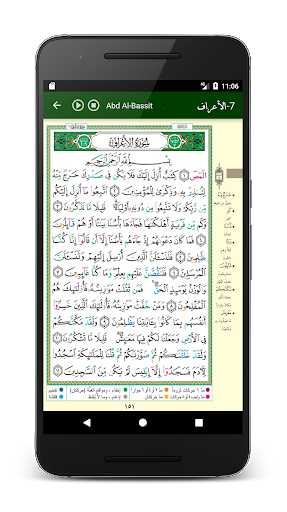 11:06
Abd Al-Bassit
7-الأعراف
سُورَةُ الأَعْرَافِ
بِسْمِ ٱللَّهِ ٱلرَّحْمَٰنِ ٱلرَّحِيمِ
الٓمٓصٓ ١ كِتَٰبٌ أُنزِلَ إِلَيْكَ فَلَا يَكُن فِى صَدْرِكَ حَرَجٌ
مِّنْهُ لِتُنذِرَ بِهِۦ وَذِكْرَىٰ لِلْمُؤْمِنِينَ ٢ ٱتَّبِعُوا۟ مَآ أُنزِلَ
إِلَيْكُم مِّن رَّبِّكُمْ وَلَا تَتَّبِعُوا۟ مِن دُونِهِۦٓ أَوْلِيَآءَ قَلِيلًا مَّا تَذَكَّرُونَ
٣ وَكَم مِّن قَرْيَةٍ أَهْلَكْنَٰهَا فَجَآءَهَا بَأْسُنَا بَيَٰتًا أَوْ هُمْ قَآئِلُونَ
٤ فَمَا كَانَ دَعْوَىٰهُمْ إِذْ جَآءَهُم بَأْسُنَآ إِلَّآ أَن قَالُوٓا۟ إِنَّا كُنَّا
ظَٰلِمِينَ ٥ فَلَنَسْـَٔلَنَّ ٱلَّذِينَ أُرْسِلَ إِلَيْهِمْ وَلَنَسْـَٔلَنَّ
ٱلْمُرْسَلِينَ ٦ فَلَنَقُصَّنَّ عَلَيْهِم بِعِلْمٍ وَمَا كُنَّا غَآئِبِينَ ٧
وَٱلْوَزْنُ يَوْمَئِذٍ ٱلْحَقُّ فَمَن ثَقُلَتْ مَوَٰزِينُهُۥ فَأُو۟لَٰٓئِكَ هُمُ
ٱلْمُفْلِحُونَ ٨ وَمَنْ خَفَّتْ مَوَٰزِينُهُۥ فَأُو۟لَٰٓئِكَ ٱلَّذِينَ خَسِرُوٓا۟
أَنفُسَهُم بِمَا كَانُوا۟ بِـَٔايَٰتِنَا يَظْلِمُونَ ٩ وَلَقَدْ مَكَّنَّٰكُمْ
فِى ٱلْأَرْضِ وَجَعَلْنَا لَكُمْ فِيهَا مَعَٰيِشَ قَلِيلًا مَّا تَشْكُرُونَ ١٠
وَلَقَدْ خَلَقْنَٰكُمْ ثُمَّ صَوَّرْنَٰكُمْ ثُمَّ قُلْنَا لِلْمَلَٰٓئِكَةِ ٱسْجُدُوا۟
لِـَٔادَمَ فَسَجَدُوٓا۟ إِلَّآ إِبْلِيسَ لَمْ يَكُن مِّنَ ٱلسَّٰجِدِينَ ١١
١٥١